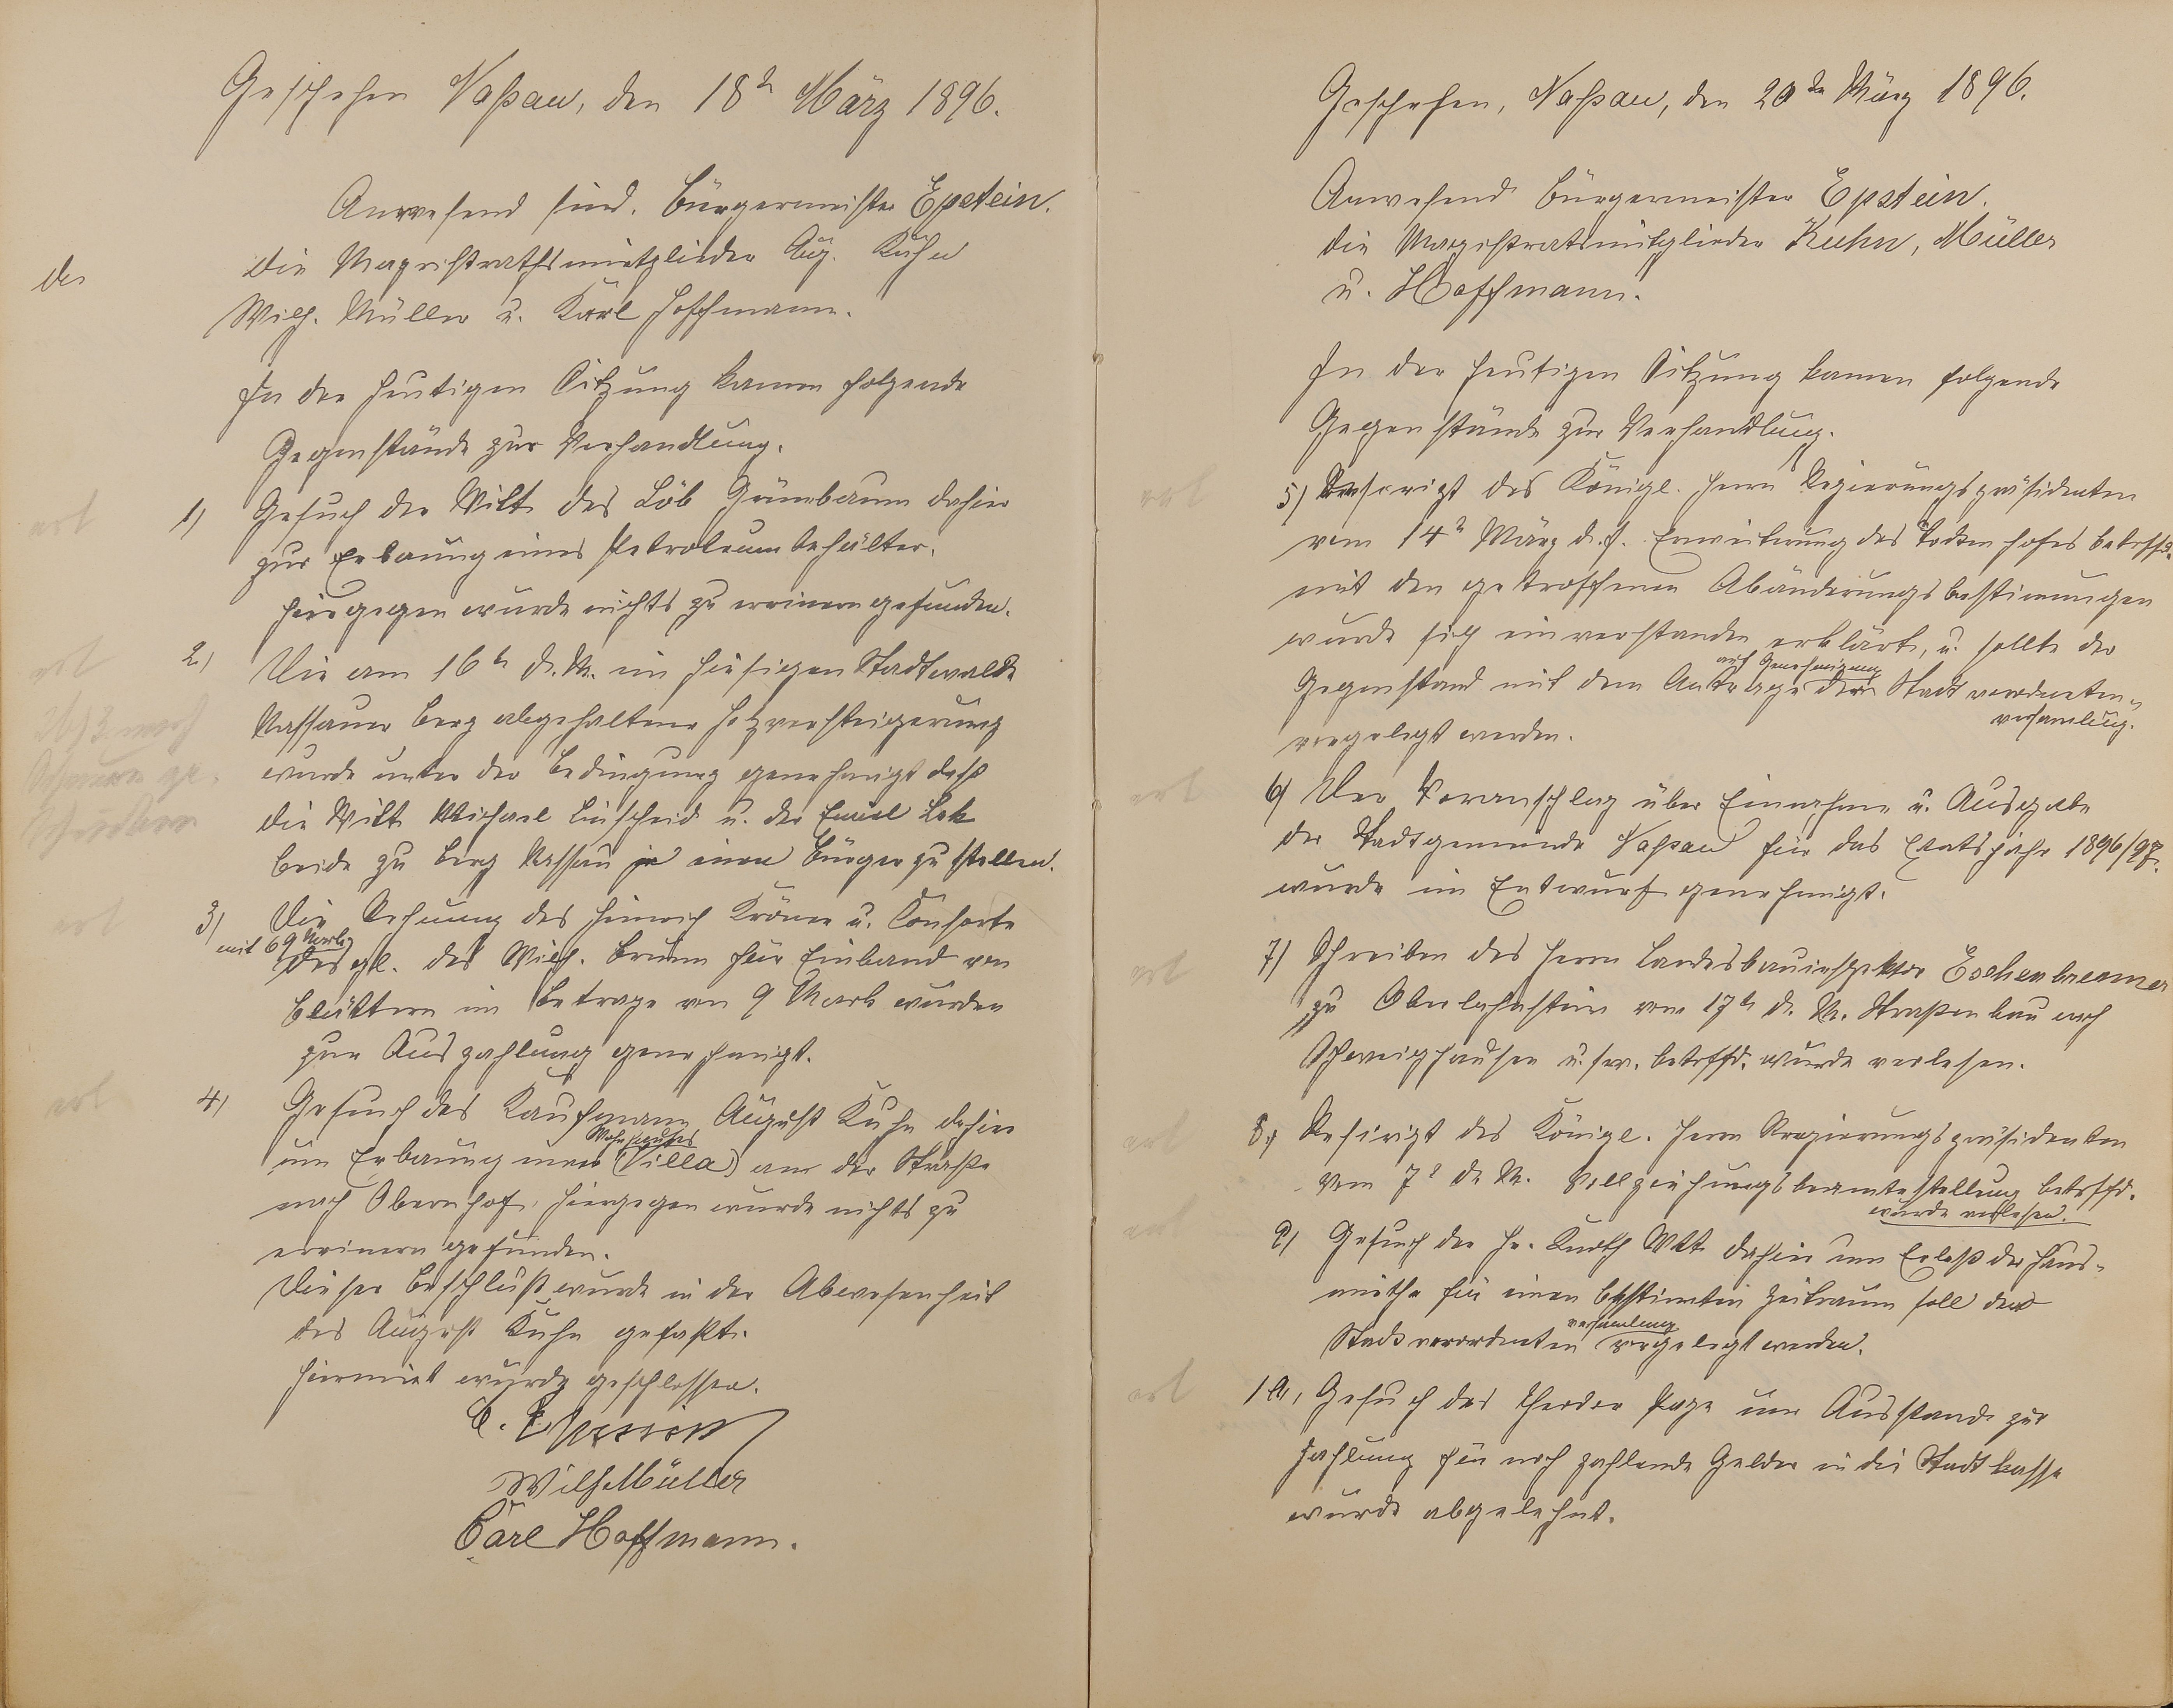 Geschehen Naßau, den 18t März 1896.
Anwesend sind. Bürgermeister Epstein.
die Magistrathsmitglieder Aug. Kuhn
Wilh. Müller u. Karl Hoffmann.
In der heutigen Sitzung kamen folgende
Gegenstände zur Verhandlung.
1) Gesuch der Witt. des Löb Grünebaum dahier
zur Erbauung eines Petroleumbehälter.
hiergegen wurde nichts zu erinnern gefunden.
2) Die am 16t d. M. im hiesigen Stadtwalde
Nassauer Berg abgehaltene Holzversteigerung
wurde unter der Bedingung genehmigt daß
die Witt. Michael Linscheid u. der Emil
beide zu Berg Nassau je einen Bürgen zu stellen.
3) Die Rechnung des Heinrich Krömer u. Consorte
mit 69 Mark
desgl. des Wilh. Brunn für Einband von
Blättern im Betrage von 9 Mark wurden
zur Auszahlung genehmigt.
4) Gesuch des Kaufmann August Kuhn dahier
Wohnhauses
um Erbauung eines (Villa) an der Straße
nach Obernhof, hiergegen wurde nichts zu
erinnern gefunden.
Dieser Beschluß wurde in der Abwesenheit
des August Kuhn gefaßt.
hiermit wurde geschlossen.
Wilh. Müller
Carl Hoffmann.
Geschehen, Naßau, den 20te März 1896.
Anwesend Bürgermeister Epstein.
die Magistratsmitglieder Kuhn, Müller
u. Hoffmann.
In der heutigen Sitzung kamen folgende
Gegenstände zur Verhandlung.
5) Rescript des Königl. Herrn Regierungspräsidenten
vom 14t März d. J. Erweiterung des Todtenhofes betrffd.
mit den getroffenen Abänderungsbestimmungen
wurde sich einverstanden erklärt, u. sollte der
auf Genehmigung
Gegenstand mit dem Antrage der Stadtverordneten-
versamlung.
vorgelegt werden.
6) Der Voranschlag über Einnahme u. Ausgabe
der Stadtgemeinde Naßau für das Etatsjahr 1896/97.
wurde im Entwurf genehmigt.
7) Schreiben des Herrn Landesbauinspektor Eschenbrenner
zu Oberlahnstein vom 17t d. M. Straßenbau nach
Schweighausen u.s.w. betrffd. wurde verlesen.
8) Rescript des Königl. Herrn Regierungspräsidenten
vom 7t d. M. Vollziehungsbeamtestellung betrffd.
wurde verlesen.
9) Gesuch der Hr. Witt. dahier um Erlaß der Haus-
miethe für einen bestimmten Zeitraum soll der
versamlung
Stadtverordneten vorgelegt werden.
10, Gesuch des Theodor um Ausstand zur
Zahlung für noch zahlende Gelder in die Stadtkasse
wurde abgelehnt.